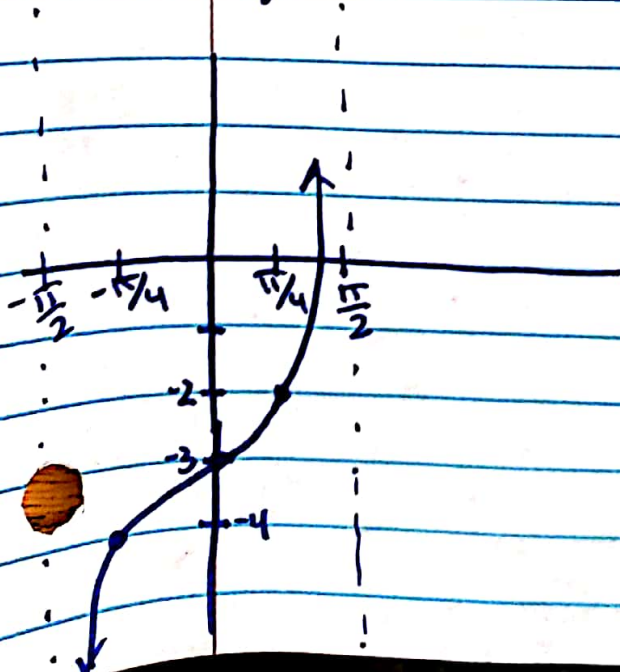 -π/2 -π/4 π/4 π/2
-2
-3
-4